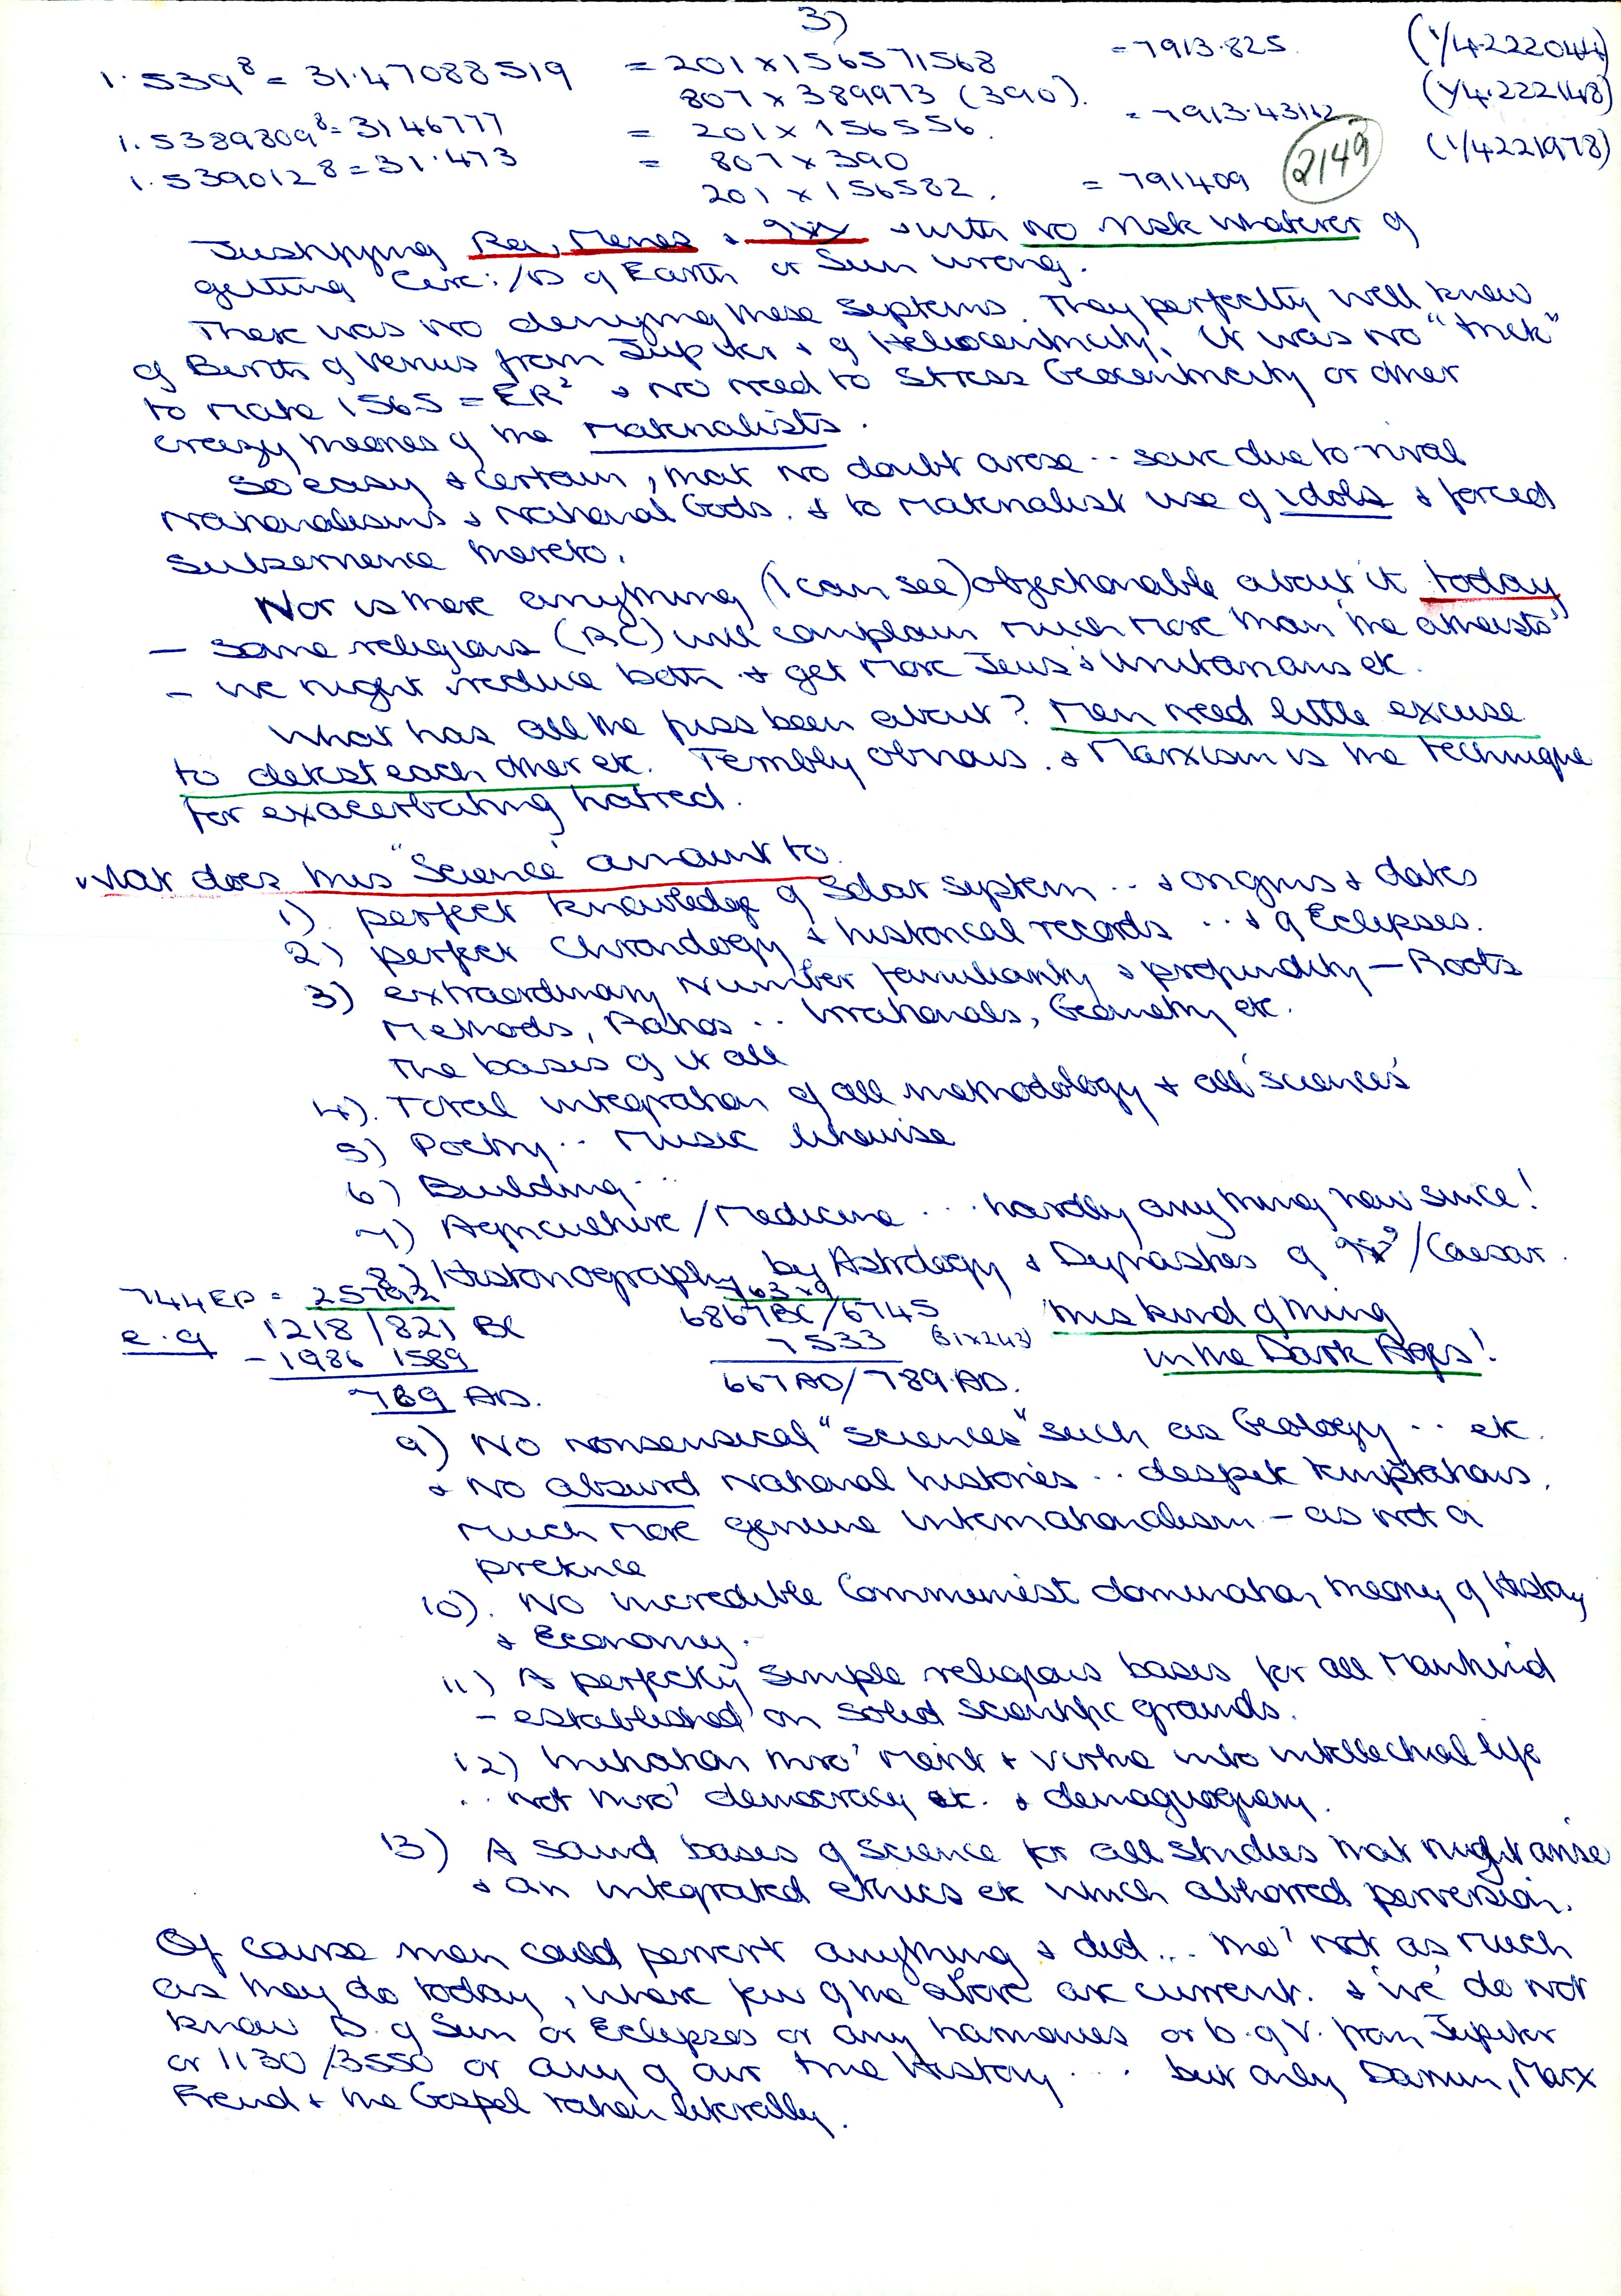 3)
1.539⁸ = 31.47088519 = 201 x 156571568 = 7913.825 (1/4.222044)
807 x 389973 (390). (1/4.222148)
1.5389809⁸ = 3146777 = 201 x 156556. = 7913.43112
1.5390128 = 31.473 = 807 x 390 (1/4221978)
201 x 156582. = 791409 2149
Justifying Rev, Menes & + with no risk whatever of
getting Circ:/D of Earth or Sun wrong.
There was no denying these Systems. They perfectly well knew
of Birth of Venus from Jupiter & of Heliocentricity. It was no "trick"
to make 1565 = ER² & no need to stress Geocentricity or other
crazy theories of the Materialists.
So easy & certain, that no doubt arose .. save due to rival
Nationalisms & National Gods. & to Materialist use of idols & forced
Subservience thereto.
Nor is there anything (I can see) objectionable about it today
- some religions (RC) will complain much more than 'the atheists'
- we might reduce both & get more Jews & Unitarians etc.
What has all the fuss been about? Men need little excuse
to detest each other etc. Terribly obvious. & Marxism is the technique
for exacerbating hatred.
What does this "Science" amount to.
1). perfect knowledge of Solar system .. & origins & dates
2) perfect Chronology & historical records ... & of Eclipses.
3) extraordinary Number familiarity & profundity - Roots
Methods, Ratios .. Irrationals, Geometry etc.
The basis of it all
4). Total integration of all methodology & all 'sciences'
5) Poetry .. Music likewise
6) Building ..
7) Agriculture / Medicine ... hardly anything new since!
8) Historiography by Astrology & Dynasties of /Caesar.
744EP = 25792 763x9
e.g 1218 / 821 BC 6867BC/6745 This kind of thing
- 1986 1589 7533 (31x243) in the Dark Ages!
769 AD. 667AD/789.AD.
9) No nonsensical "sciences" such as Geology .. etc.
& No absurd National histories .. despite temptations.
Much more genuine internationalism - as not a
pretence
10). No incredible Communist domination, theory of History
& Economy.
11) A perfectly simple religious basis for all Mankind
- established on solid scientific grounds.
12) Initiation thro' Merit & Virtue into intellectual life
.. not thro' democracy etc. & demagoguery.
13) A sound basis of science for all studies that might arise
& an integrated ethics etc which abhorred perversion.
Of course men could pervert anything & did ... tho' not as much
as they do today, where few of the above are current. & 'we' do not
know D. of Sun or Eclipses or any harmonies or b. of V. from Jupiter
or 1130/3550 or any of our true History ... but only Darwin, Marx
Freud & the Gospel taken literally.